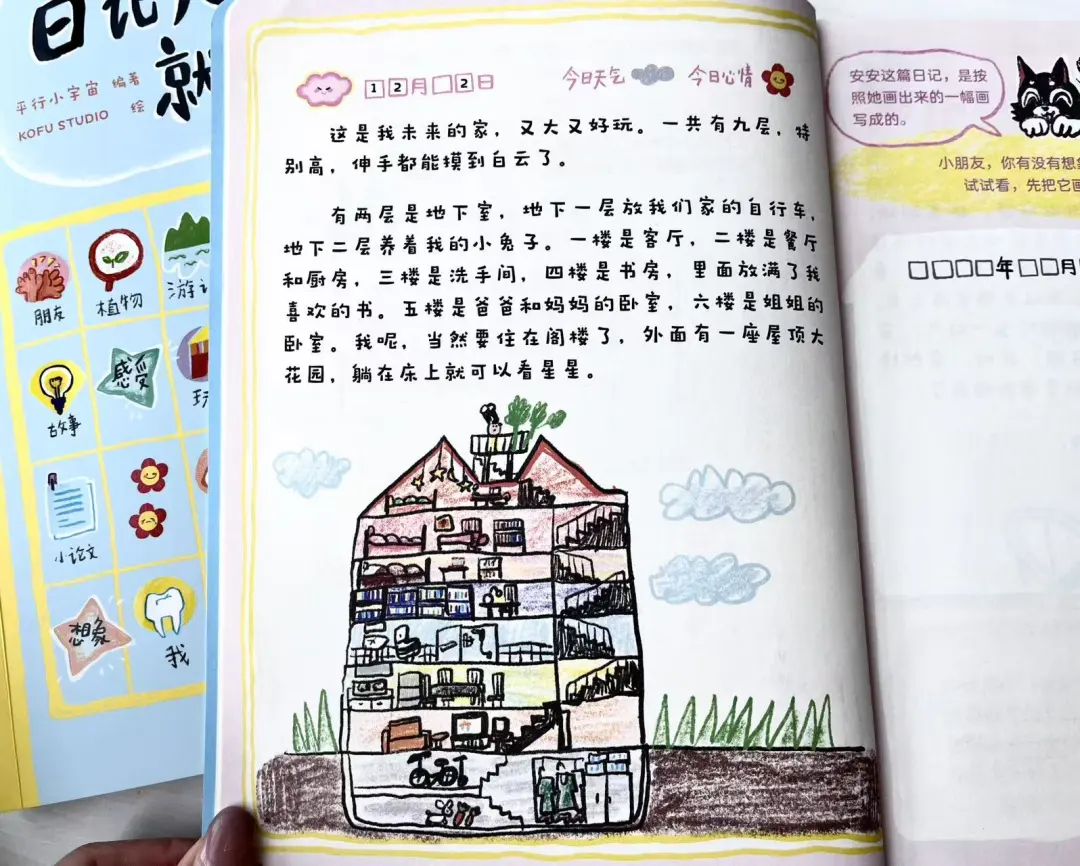 日记
就
平行小宇宙 编著
KOFU STUDIO 绘
朋友
植物
游
故事
感受
玩
小论文
想象
我
12月□2日 今日天气 今日心情
这是我未来的家，又大又好玩。一共有九层，特
别高，伸手都能摸到白云了。
有两层是地下室，地下一层放我们家的自行车，
地下二层养着我的小兔子。一楼是客厅，二楼是餐厅
和厨房，三楼是洗手间，四楼是书房，里面放满了我
喜欢的书。五楼是爸爸和妈妈的卧室，六楼是姐姐的
卧室。我呢，当然要住在阁楼了，外面有一座屋顶大
花园，躺在床上就可以看星星。
安安这篇日记，是按
照她画出来的一幅画
写成的。
小朋友，你有没有想象
试试看，先把它画
□□□□年□□月